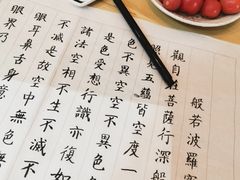 般若波羅
觀自在菩薩行深般
見五蘊皆空度一
色不異空空不異
是色受想行識亦復如
諸法空相不生不滅不
不減是故空中無色
眼耳鼻舌身意無
眼界乃